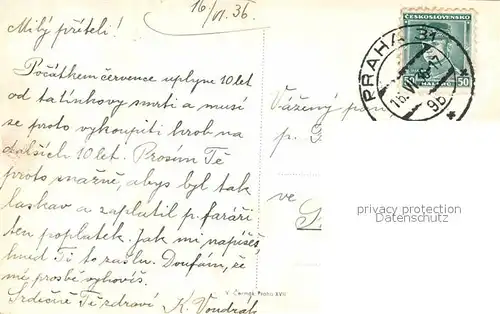 16/VI. 36.
Milý příteli!
Počátkem července uplyne 10 let
od tatínkovy smrti a musí
se proto vykoupiti hrob na
dalších 10 let. Prosím Tě
proto snažně, abys byl tak
laskav a zaplatil p. faráři
ten poplatek. Jak mi napíšeš,
hned Ti to zašlu. Doufám, že
mé prosbě vyhovíš.
Srdečně Tě zdraví K. Vondrak
Vážený pan
p.
ve
ČESKOSLOVENSKO
50
PRAHA 31
16. VI. 36
9b
privacy protection
Datenschutz
V. Čermák, Praha XVII